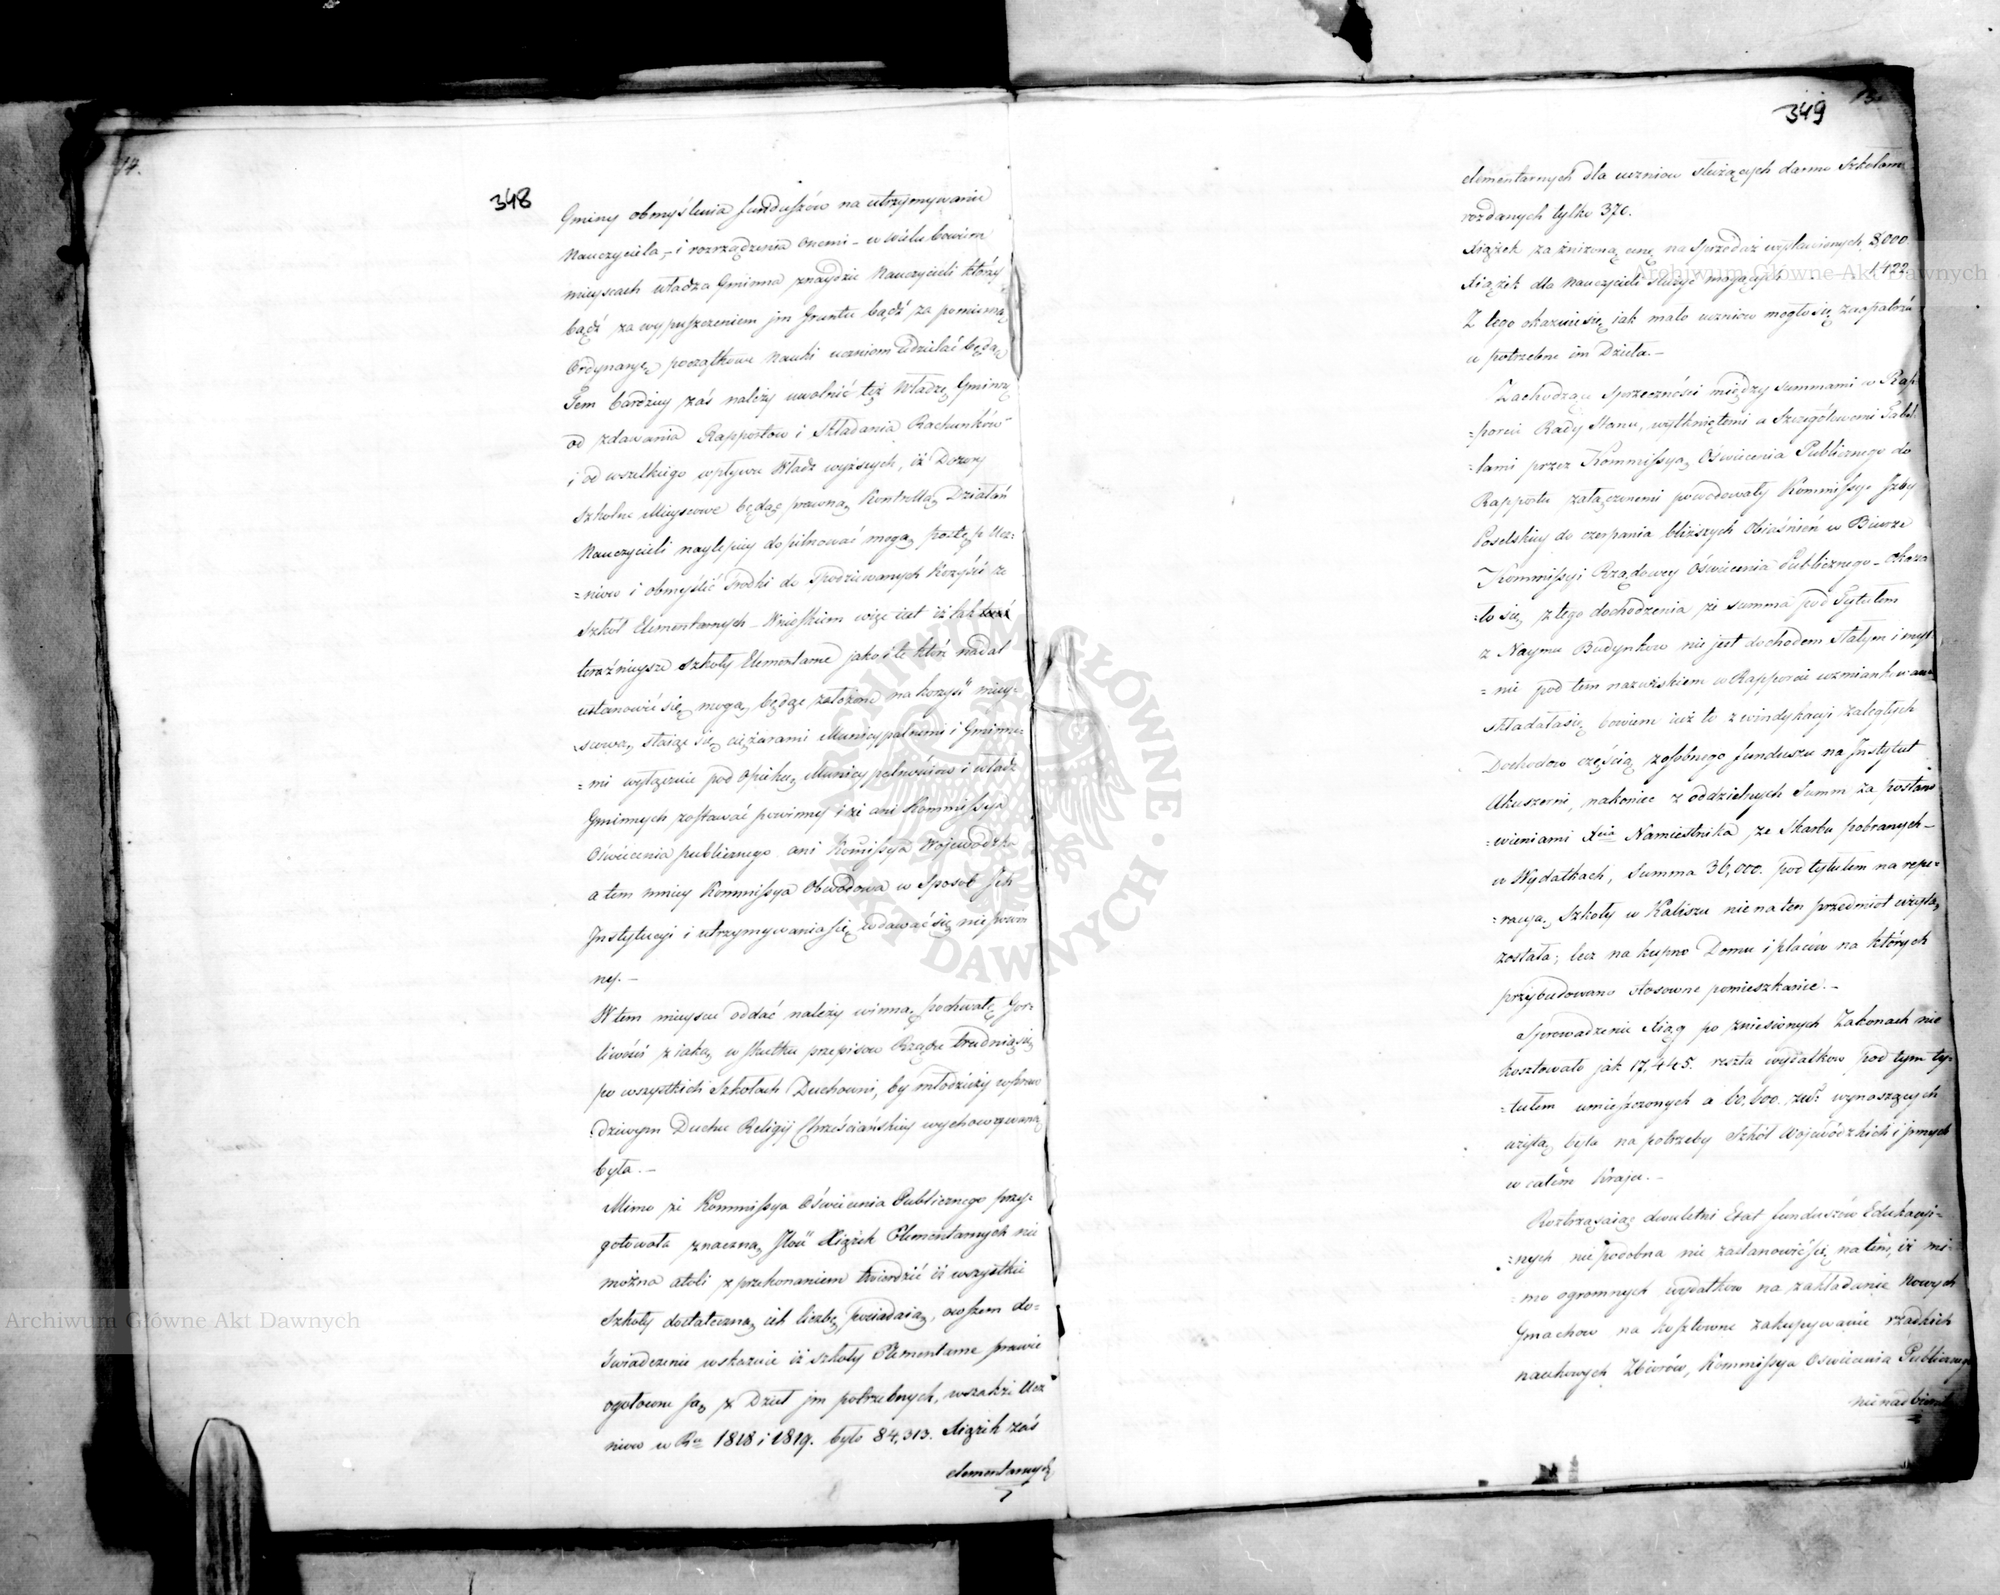 14.
348
Gminy obmyślenia funduszów na utrzymywanie
Nauczyciela, – i rozrządzenia onemi – w wielu bowiem
mieyscach władza Gminna znaydzie Nauczycieli którzy
bądź za wypuszczeniem jm Gruntu bądź za pomierną
Ordynaryę początkowe Nauki uczniom udzielać będą
Tem bardziey zaś należy uwolnić też Władzę Gminną
od zdawania Rapportow i składania Rachunków
i od wszelkiego wpływu Władz wyższych, iż Dozory
Szkolne Mieyscowe będąc prawną Kontrollą Działań
Nauczycieli naylepiey dopilnować mogą postęp Ucz-
=niow i obmyślić Srodki do spodziewanych Korzyści ze
Szkół Elementarnych – Wnioskiem więc iest iż tak
teraźnieysze Szkoły Elementarne jako i te które nadal
ustanowić się mogą, będąc założone na korzyść miey-
scową, staiąc się ciężarami Municypalnemi i Gminne-
=mi wyłącznie pod opieką Municypalnościow i władz
Gminnych zostawać powinny i że ani Kommissya
Oświecenia publicznego ani Komissya Wojewodzka
a tem mniey Kommissya Obwodowa w sposob Jch
Jnstytucyi i utrzymywania się wdawać się nie powin
ny. –
W tem mieyscu oddać należy winną pochwałę Gor-
liwości z iaką w skutku przepisow Rządu trudnią się
po wszystkich Szkołach Duchowni, by młodzież w praw
dziwym Duchu Religij Chrześciańskiey wychowywaną
była. –
Mimo że Kommissya Oświecenia Publicznego przy-
gotowała znaczną Ilość Xiążek Elementarnych nie
można atoli z przekonaniem twierdzić iż wszystkie
Szkoły dostateczną ich liczbę posiadaią, owszem do-
świadczenie wskazuie iż szkoły Elementarne prawie
ogołocone są z Dzieł jm potrzebnych, wszakże Ucz
niow w Ru 1818 i 1819. było 84,313. Xiążek zaś
elementarnych
349
elementarnych dla uczniow służących darmo Szkołom
rozdanych tylko 370.
Xiążek za zniżoną cenę na sprzedaż wystawionych 8,000.
Xiążek dla Nauczycieli służyć mogących 1422
Z tego okazuie się iak mało uczniow mogło się zaopatrzyć
w potrzebne im Dzieła. –
Zachodzące Sprzeczności między summami w Rap-
=porcie Rady Stanu, wytkniętemi a Szczegółowemi Tabel-
=lami przez Kommissyą Oświecenia Publicznego do
Rapportu załączonemi powodowały Kommissyę Jzby
Poselskiey do czerpania bliższych Obiaśnień w Biurze
Kommissyi Rządowey Oświecenia Publicznego – Okaza
=ło się z tego dochodzenia że summa pod Tytułem
z Naymu Budynkow nie jest dochodem Stałym i myl-
=nie pod tem nazwiskiem w Rapporcie wzmiankowana
składała się bowiem iuż to z windykacyi zaległych
Dochodow częścią z osobnego funduszu na Jnstytut
Akuszerni, nakoniec z oddzielnych Summ za postano
=wieniami Xcia Namiestnika ze Skarbu pobranych –
w Wydatkach, Summa 36,000. pod tytułem na repe-
=racyą Szkoły w Kaliszu nie na ten przedmiot użytą
została; lecz na kupno Domu i placów na których
przybudowano stosowne pomieszkanie. –
Sprowadzenie Xiąg po zniesionych Zakonach nie
kosztowało jak 17,445. reszta wydatkow pod tym ty-
=tułem umieszczonych a 60,600. złt: wynoszących
użytą była na potrzeby Szkół Wojewódzkich i jnnych
w całem Kraju. –
Roztrząsaiąc dwuletni Etat funduszów Edukacyi-
=nych niepodobna nie zastanowić się na tem, iż mi-
=mo ogromnych wydatkow na zakładanie Nowych
Gmachow na kosztowne zakupywanie rzadkich
naukowych Zbiorów, Kommissya Oswiecenia Publicznego
nie nadbierała
Archiwum Główne Akt Dawnych
Archiwum Główne Akt Dawnych
ARCHIWUM GŁÓWNE · AKT DAWNYCH ·